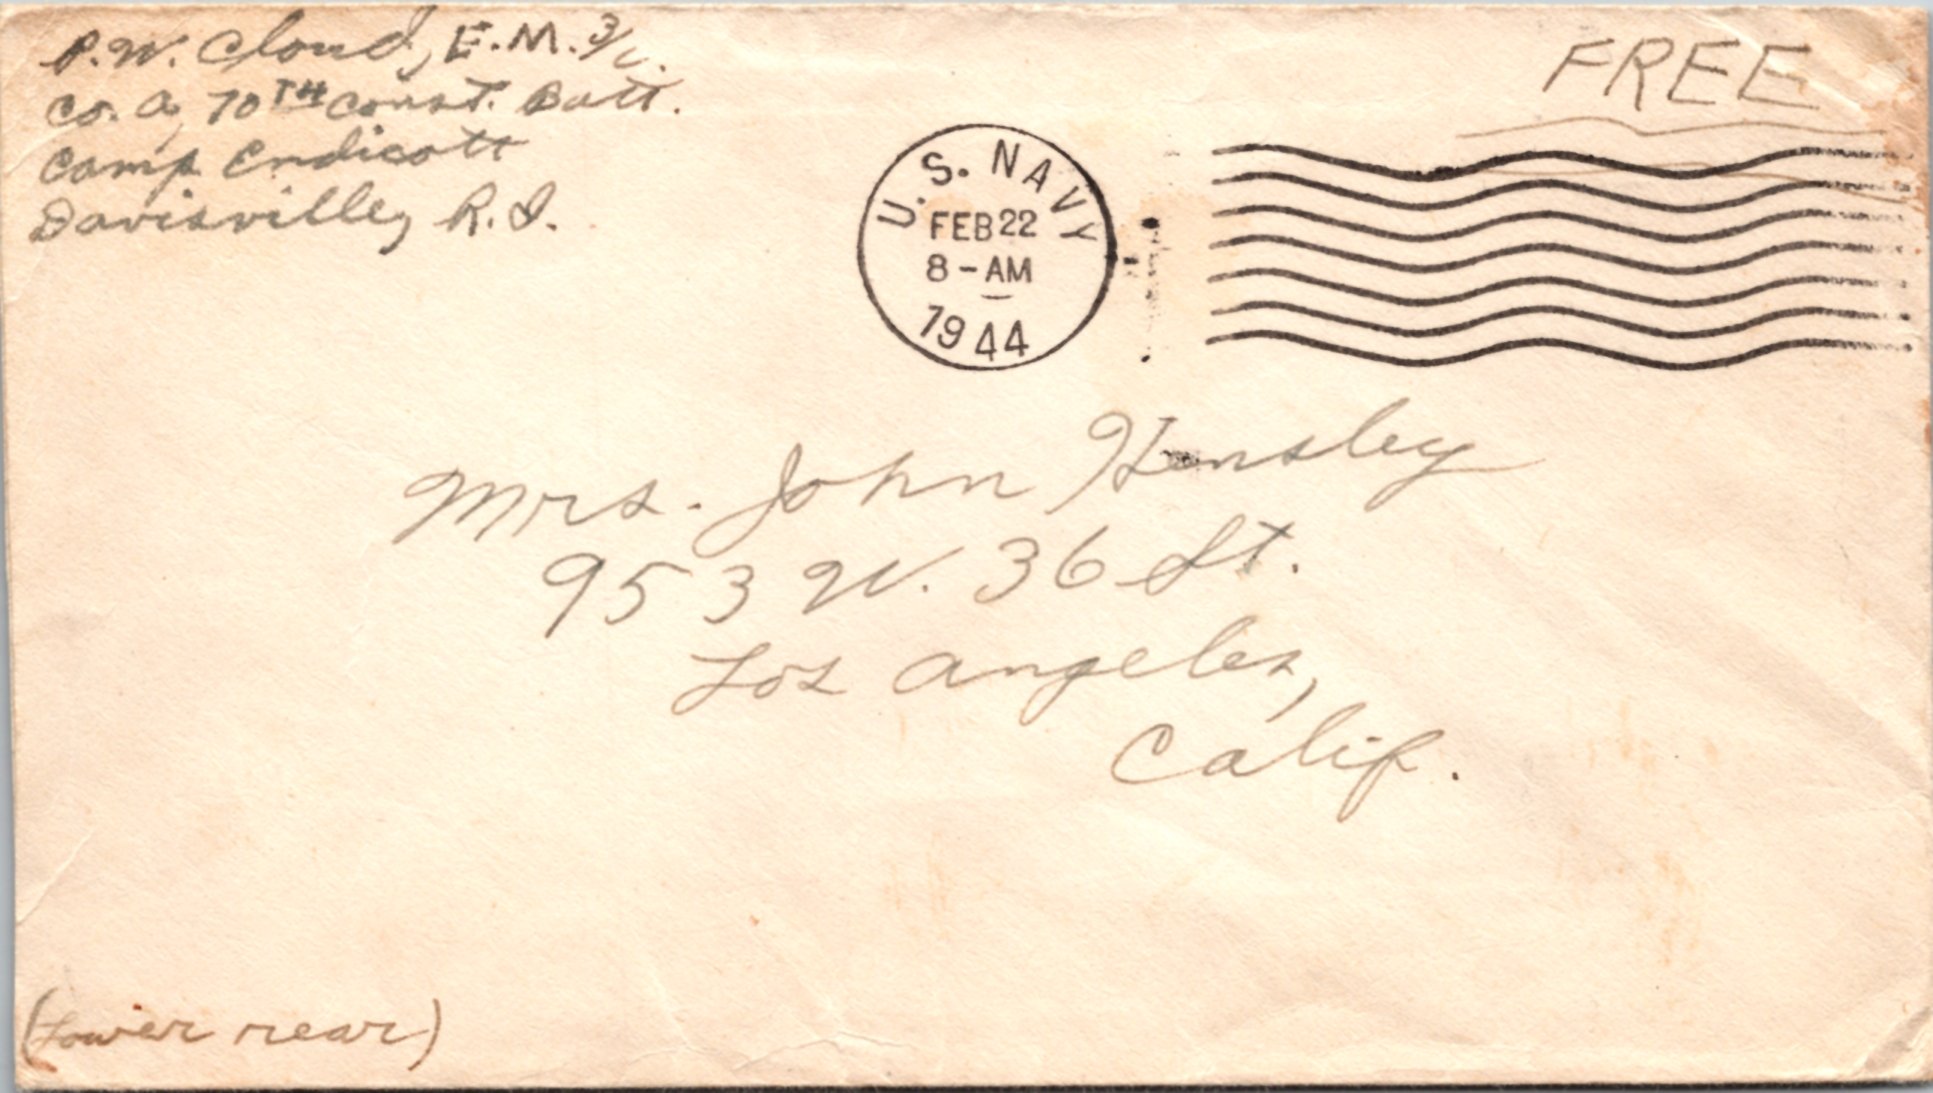 P.W. Cloud, E.M. 3/c.
Co. A, 70TH Const. Batt.
Camp Endicott
Davisville, R.I.
FREE
U.S. NAVY
FEB 22
8-AM
1944
Mrs. John Hensley
953 W. 36 St.
Los Angeles,
Calif.
(Lower rear)